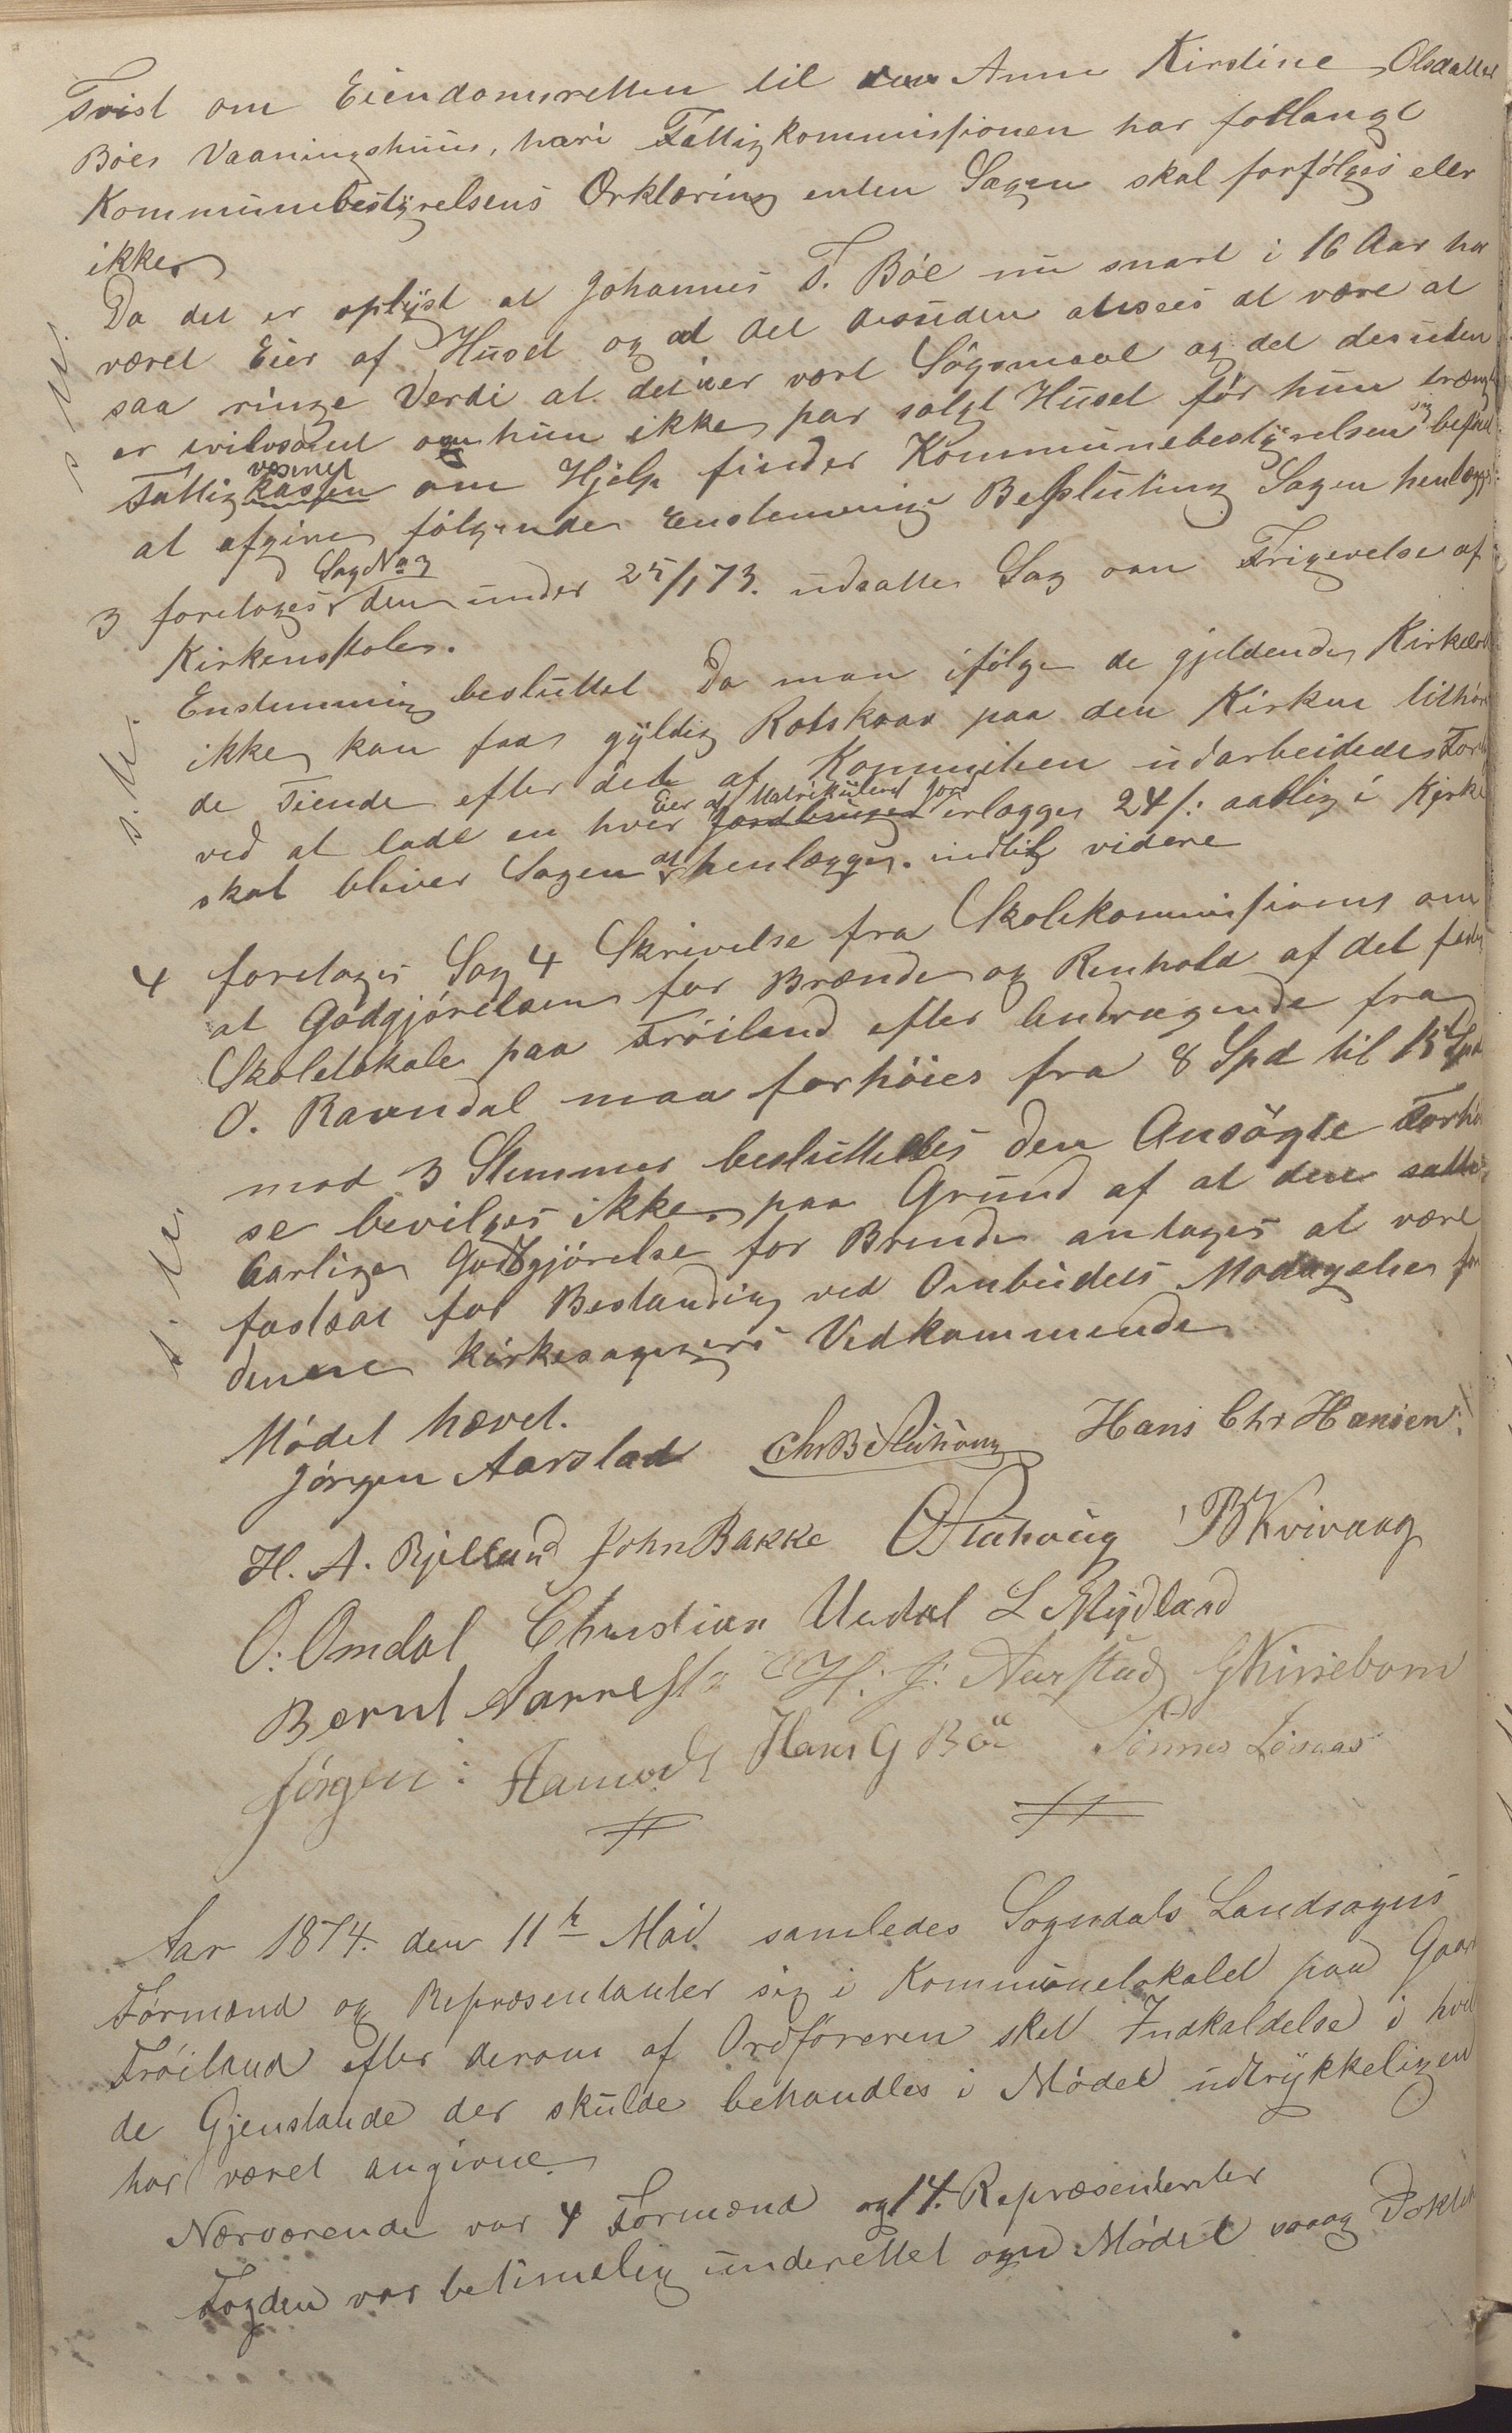 Tvist om Eiendomsretten til den Anne Kirstine Olsdatter
Böes Vaaningshuus, hvori Fattigkommissionen har forlangt
Kommunebestyrelsens Erklæring enten Sagen skal forfölges eler
ikke.
Da det er oplyst at Johannes T. Böe nu snart i 16 Aar har
været Eier af Huset og at det desuden ansees at være at
saa ringe Verdi at det ei er vært Sögsmaal og det desuden
er tvilvsomt om hun ikke har solgt Huset för hun trængte
Fattigkassen væsenet om Hjelp finder Kommunebestyrelsen sig beføiet
at afgive følgende Enstemmige Beslutning Sagen henlægges
3 foretoges Sag No 3 den under 25/1 73. udsatte Sag om Frigivelse af
Kirkenstolen.
Enstemmig besluttet Da man ifölge de gjeldende Kirkelove
ikke kan faa gyldig Retskrav paa den Kirken tilhören
de Tiende efter det af Kommiteen udarbeidede Forslag
ved at lade en hver Jordbruger Eier af Matrikuleret Jord erlægge 24 /: aarlig i Kirke
skat bliver Sagen at henlægges indtil videre
4 foretoges Sag 4 Skrivelse fra Skolekommissionen om
at Godgjörelsen for Brænde og Renhold af det faste
Skolelokale paa Tröiland efter Andragende fra
O. Ravndal maa forhöies fra 8 Spd til 15 Spd
mod 3 Stemmer besluttedes den Ansögte Forhöiel
se bevilges ikke paa Grund af at den satte
Aarlige Godtgjörelse for Brende antages at være
fastsat for Bestandig ved Ombudets Modtagelse for
denne Kirkesogns Vedkommende
Mödet hævet.
Jörgen Aarstad Chr B Stuhoug Hans Chr Hansen
H. A. Bjelland John Bakke O Stuhoug B Kvivaag
O. Omdal Christian Uedal L Mydland
Bernt Aarrestad H. J. Aarstad G Kinnebom
Jörgen Aamodt Hans G Böe Tönnes Lövaas
Aar 1874. den 11te Mai samledes Sogndals Landsogns
Formænd og Repræsentanter sig i Kommunelokalet paa Gaarden
Tröiland efter derom af Ordföreren sket Indkaldelse i hvil
de Gjenstande der skulde behandles i Mödet udtrykkeligen
har været angivne
Nærværende var 4 Formænd og 14. Repræsentanter
Fogden var betimelig underettet om Mödet